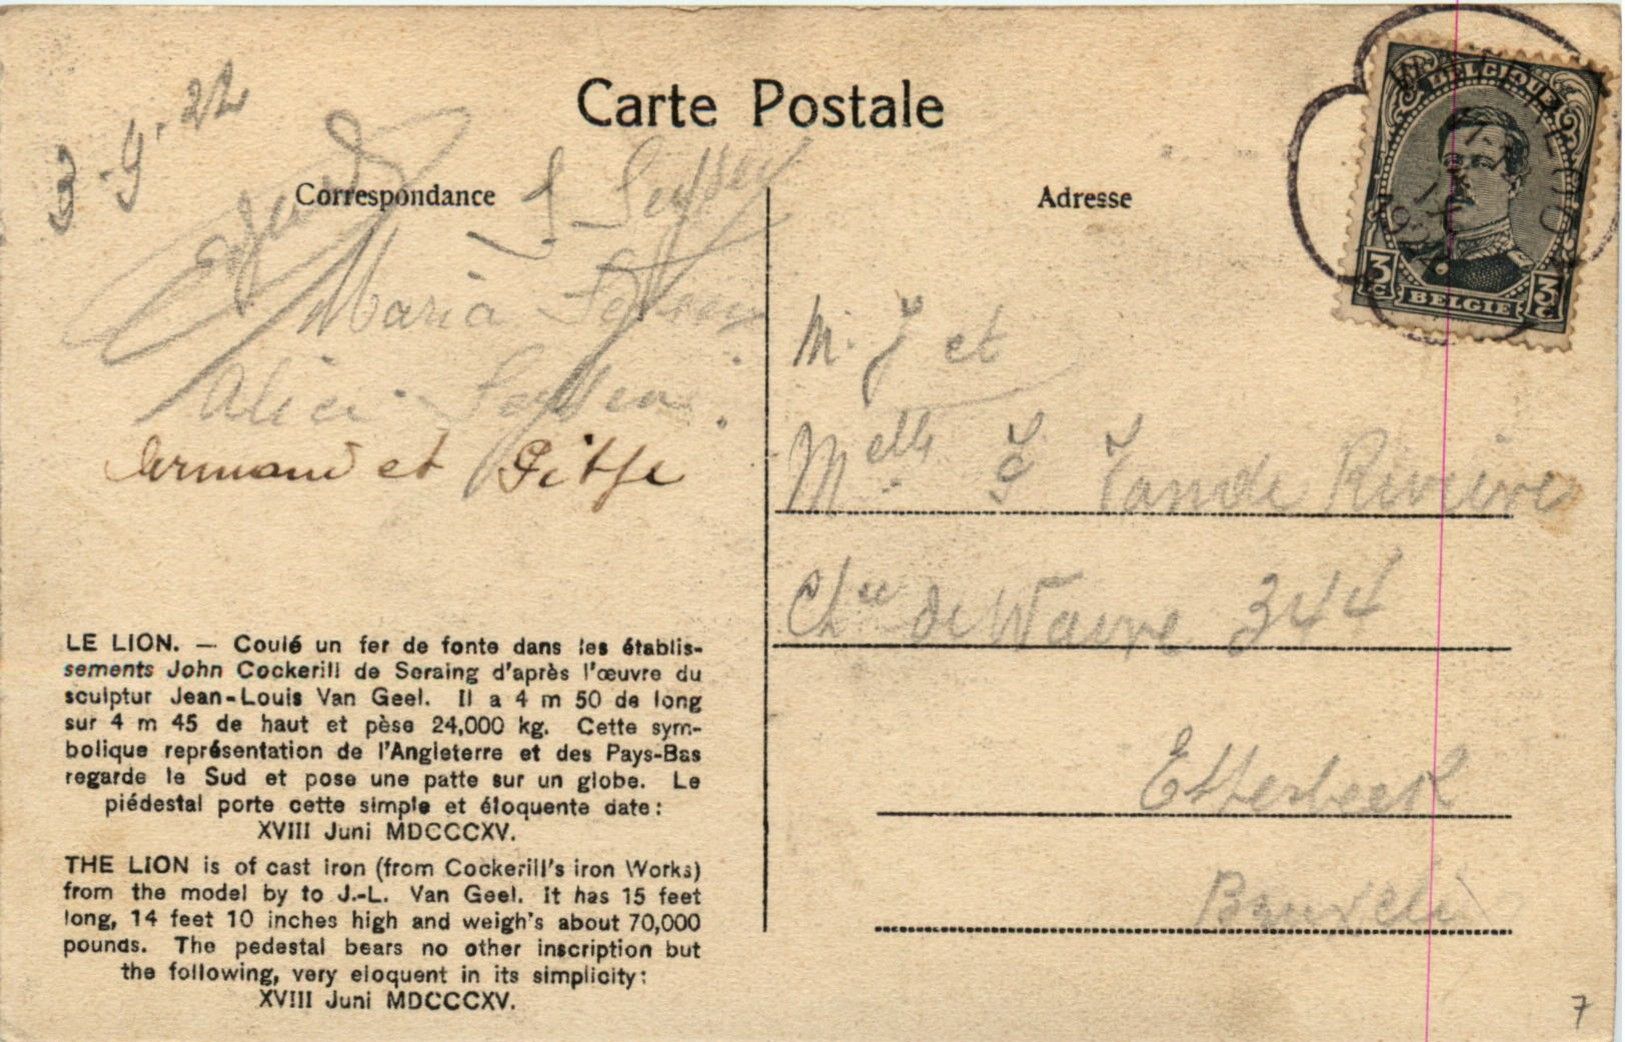 Carte Postale
3-9-22
Correspondance
Maria
Armand et
LE LION. — Coulé un fer de fonte dans les établis-
sements John Cockerill de Seraing d'après l'œuvre du
sculptur Jean-Louis Van Geel. Il a 4 m 50 de long
sur 4 m 45 de haut et pèse 24,000 kg. Cette sym-
bolique représentation de l'Angleterre et des Pays-Bas
regarde le Sud et pose une patte sur un globe. Le
piédestal porte cette simple et éloquente date:
XVIII Juni MDCCCXV.
THE LION is of cast iron (from Cockerill's iron Works)
from the model by to J.-L. Van Geel. it has 15 feet
long, 14 feet 10 inches high and weigh's about 70,000
pounds. The pedestal bears no other inscription but
the following, very eloquent in its simplicity:
XVIII Juni MDCCCXV.
Adresse
BELGIQUE
3c BELGIE 3c
WATERLOO
M. J et
Melle J Vande Rivière
Chée de Wavre 344
Etterbeek
Bruxelles
7